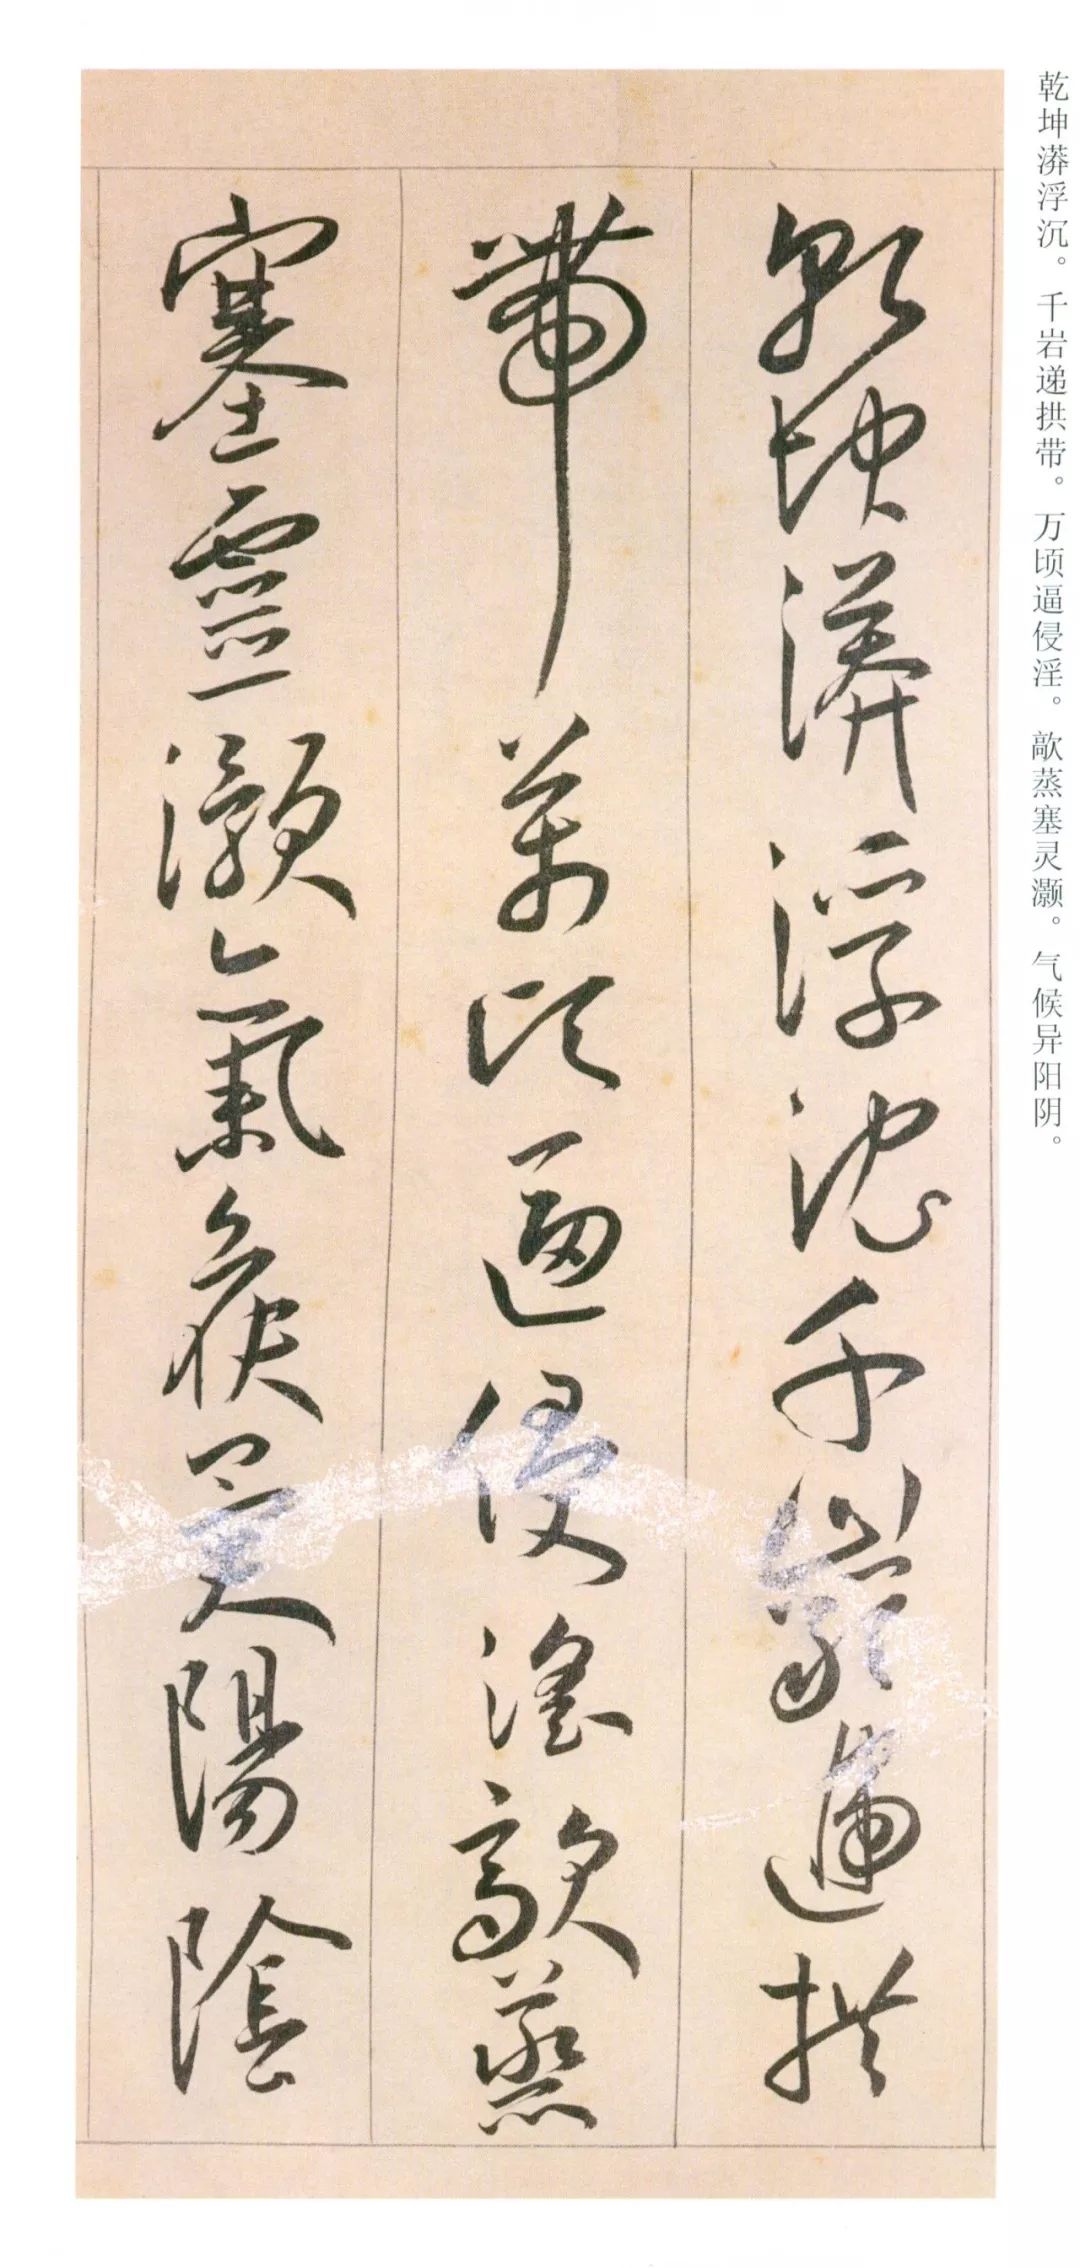 乾坤漭浮沉。千岩递拱带。万顷逼侵淫。歊蒸塞灵灏。气候异阳阴。
乾坤漭浮沈千巖遞拱
帶萬頃逼侵淫歊蒸
塞靈灝氣候異陽陰